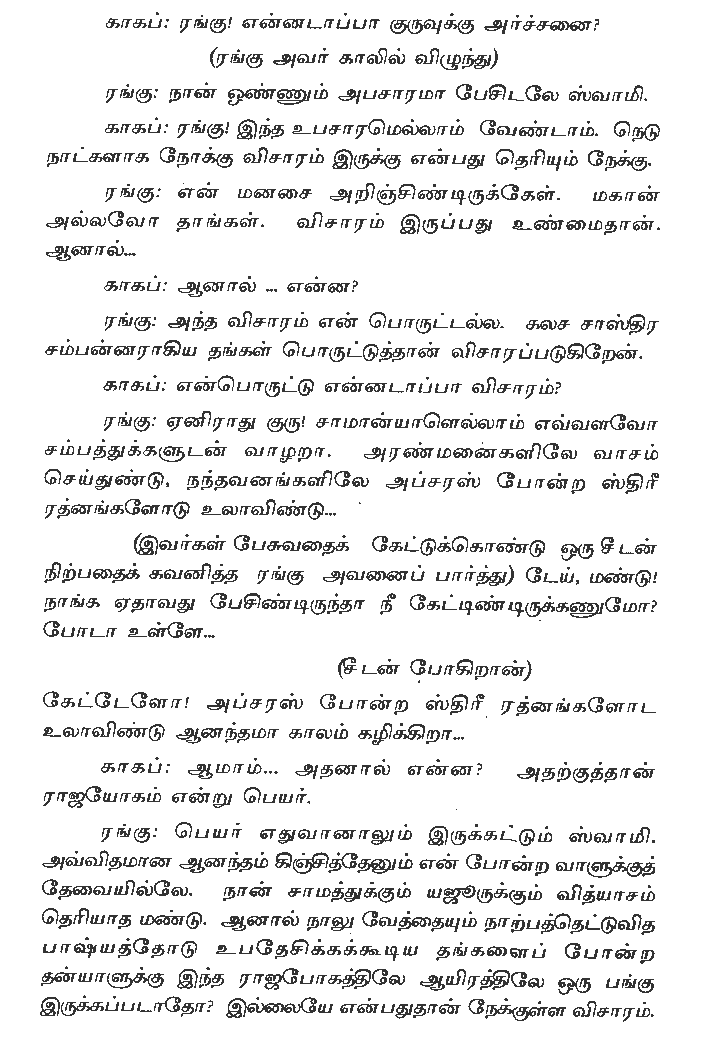 காகப்: ரங்கு! என்னடாப்பா குருவுக்கு அர்ச்சனை?
(ரங்கு அவர் காலில் விழுந்து)
ரங்கு: நான் ஒண்ணும் அபசாரமா பேசிடலே ஸ்வாமி.
காகப்: ரங்கு! இந்த உபசாரமெல்லாம் வேண்டாம். நெடு
நாட்களாக நோக்கு விசாரம் இருக்கு என்பது தெரியும் நேக்கு.
ரங்கு: என் மனசை அறிஞ்சிண்டிருக்கேள். மகான்
அல்லவோ தாங்கள். விசாரம் இருப்பது உண்மைதான்.
ஆனால்...
காகப்: ஆனால் ... என்ன?
ரங்கு: அந்த விசாரம் என் பொருட்டல்ல. கலச சாஸ்திர
சம்பன்னராகிய தங்கள் பொருட்டுத்தான் விசாரப்படுகிறேன்.
காகப்: என்பொருட்டு என்னடாப்பா விசாரம்?
ரங்கு: ஏனிராது குரு! சாமான்யாளெல்லாம் எவ்வளவோ
சம்பத்துக்களுடன் வாழறா. அரண்மனைகளிலே வாசம்
செய்துண்டு, நந்தவனங்களிலே அப்சரஸ் போன்ற ஸ்திரீ
ரத்னங்களோடு உலாவிண்டு...
(இவர்கள் பேசுவதைக் கேட்டுக்கொண்டு ஒரு சீடன்
நிற்பதைக் கவனித்த ரங்கு அவனைப் பார்த்து) டேய், மண்டு!
நாங்க ஏதாவது பேசிண்டிருந்தா நீ கேட்டிண்டிருக்கணுமோ?
போடா உள்ளே...
(சீடன் போகிறான்)
கேட்டேளோ! அப்சரஸ் போன்ற ஸ்திரீ ரத்னங்களோட
உலாவிண்டு ஆனந்தமா காலம் கழிக்கிறா...
காகப்: ஆமாம்... அதனால் என்ன? அதற்குத்தான்
ராஜயோகம் என்று பெயர்.
ரங்கு: பெயர் எதுவானாலும் இருக்கட்டும் ஸ்வாமி.
அவ்விதமான ஆனந்தம் கிஞ்சித்தேனும் என் போன்ற வாளுக்குத்
தேவையில்லே. நான் சாமத்துக்கும் யஜூருக்கும் வித்யாசம்
தெரியாத மண்டு. ஆனால் நாலு வேத்தையும் நாற்பத்தெட்டுவித
பாஷ்யத்தோடு உபதேசிக்கக்கூடிய தங்களைப் போன்ற
தன்யாளுக்கு இந்த ராஜபோகத்திலே ஆயிரத்திலே ஒரு பங்கு
இருக்கப்படாதோ? இல்லையே என்பதுதான் நேக்குள்ள விசாரம்.